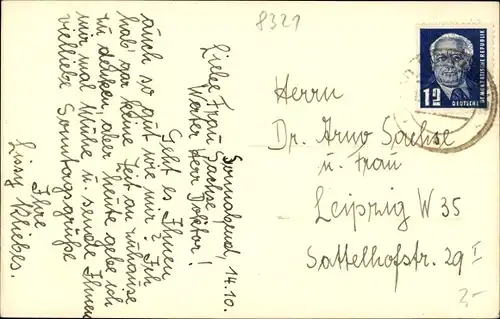 8321
Sonnabend, 14.10.
Liebe Frau Sachse,
Werter Herr Doktor!
Geht es Ihnen
auch so gut wie mir? Ich
hab' gar keine Zeit an zuhause
zu denken, aber heute gebe ich
mir mal Mühe u. sende Ihnen
vielliebe Sonntagsgrüße
Ihre
Lissy Kliebes.
DEUTSCHE DEMOKRATISCHE REPUBLIK
12
Herrn
Dr. Arno Sachse
u. Frau
Leipzig W 35
Sattelhofstr. 29 I
2,-